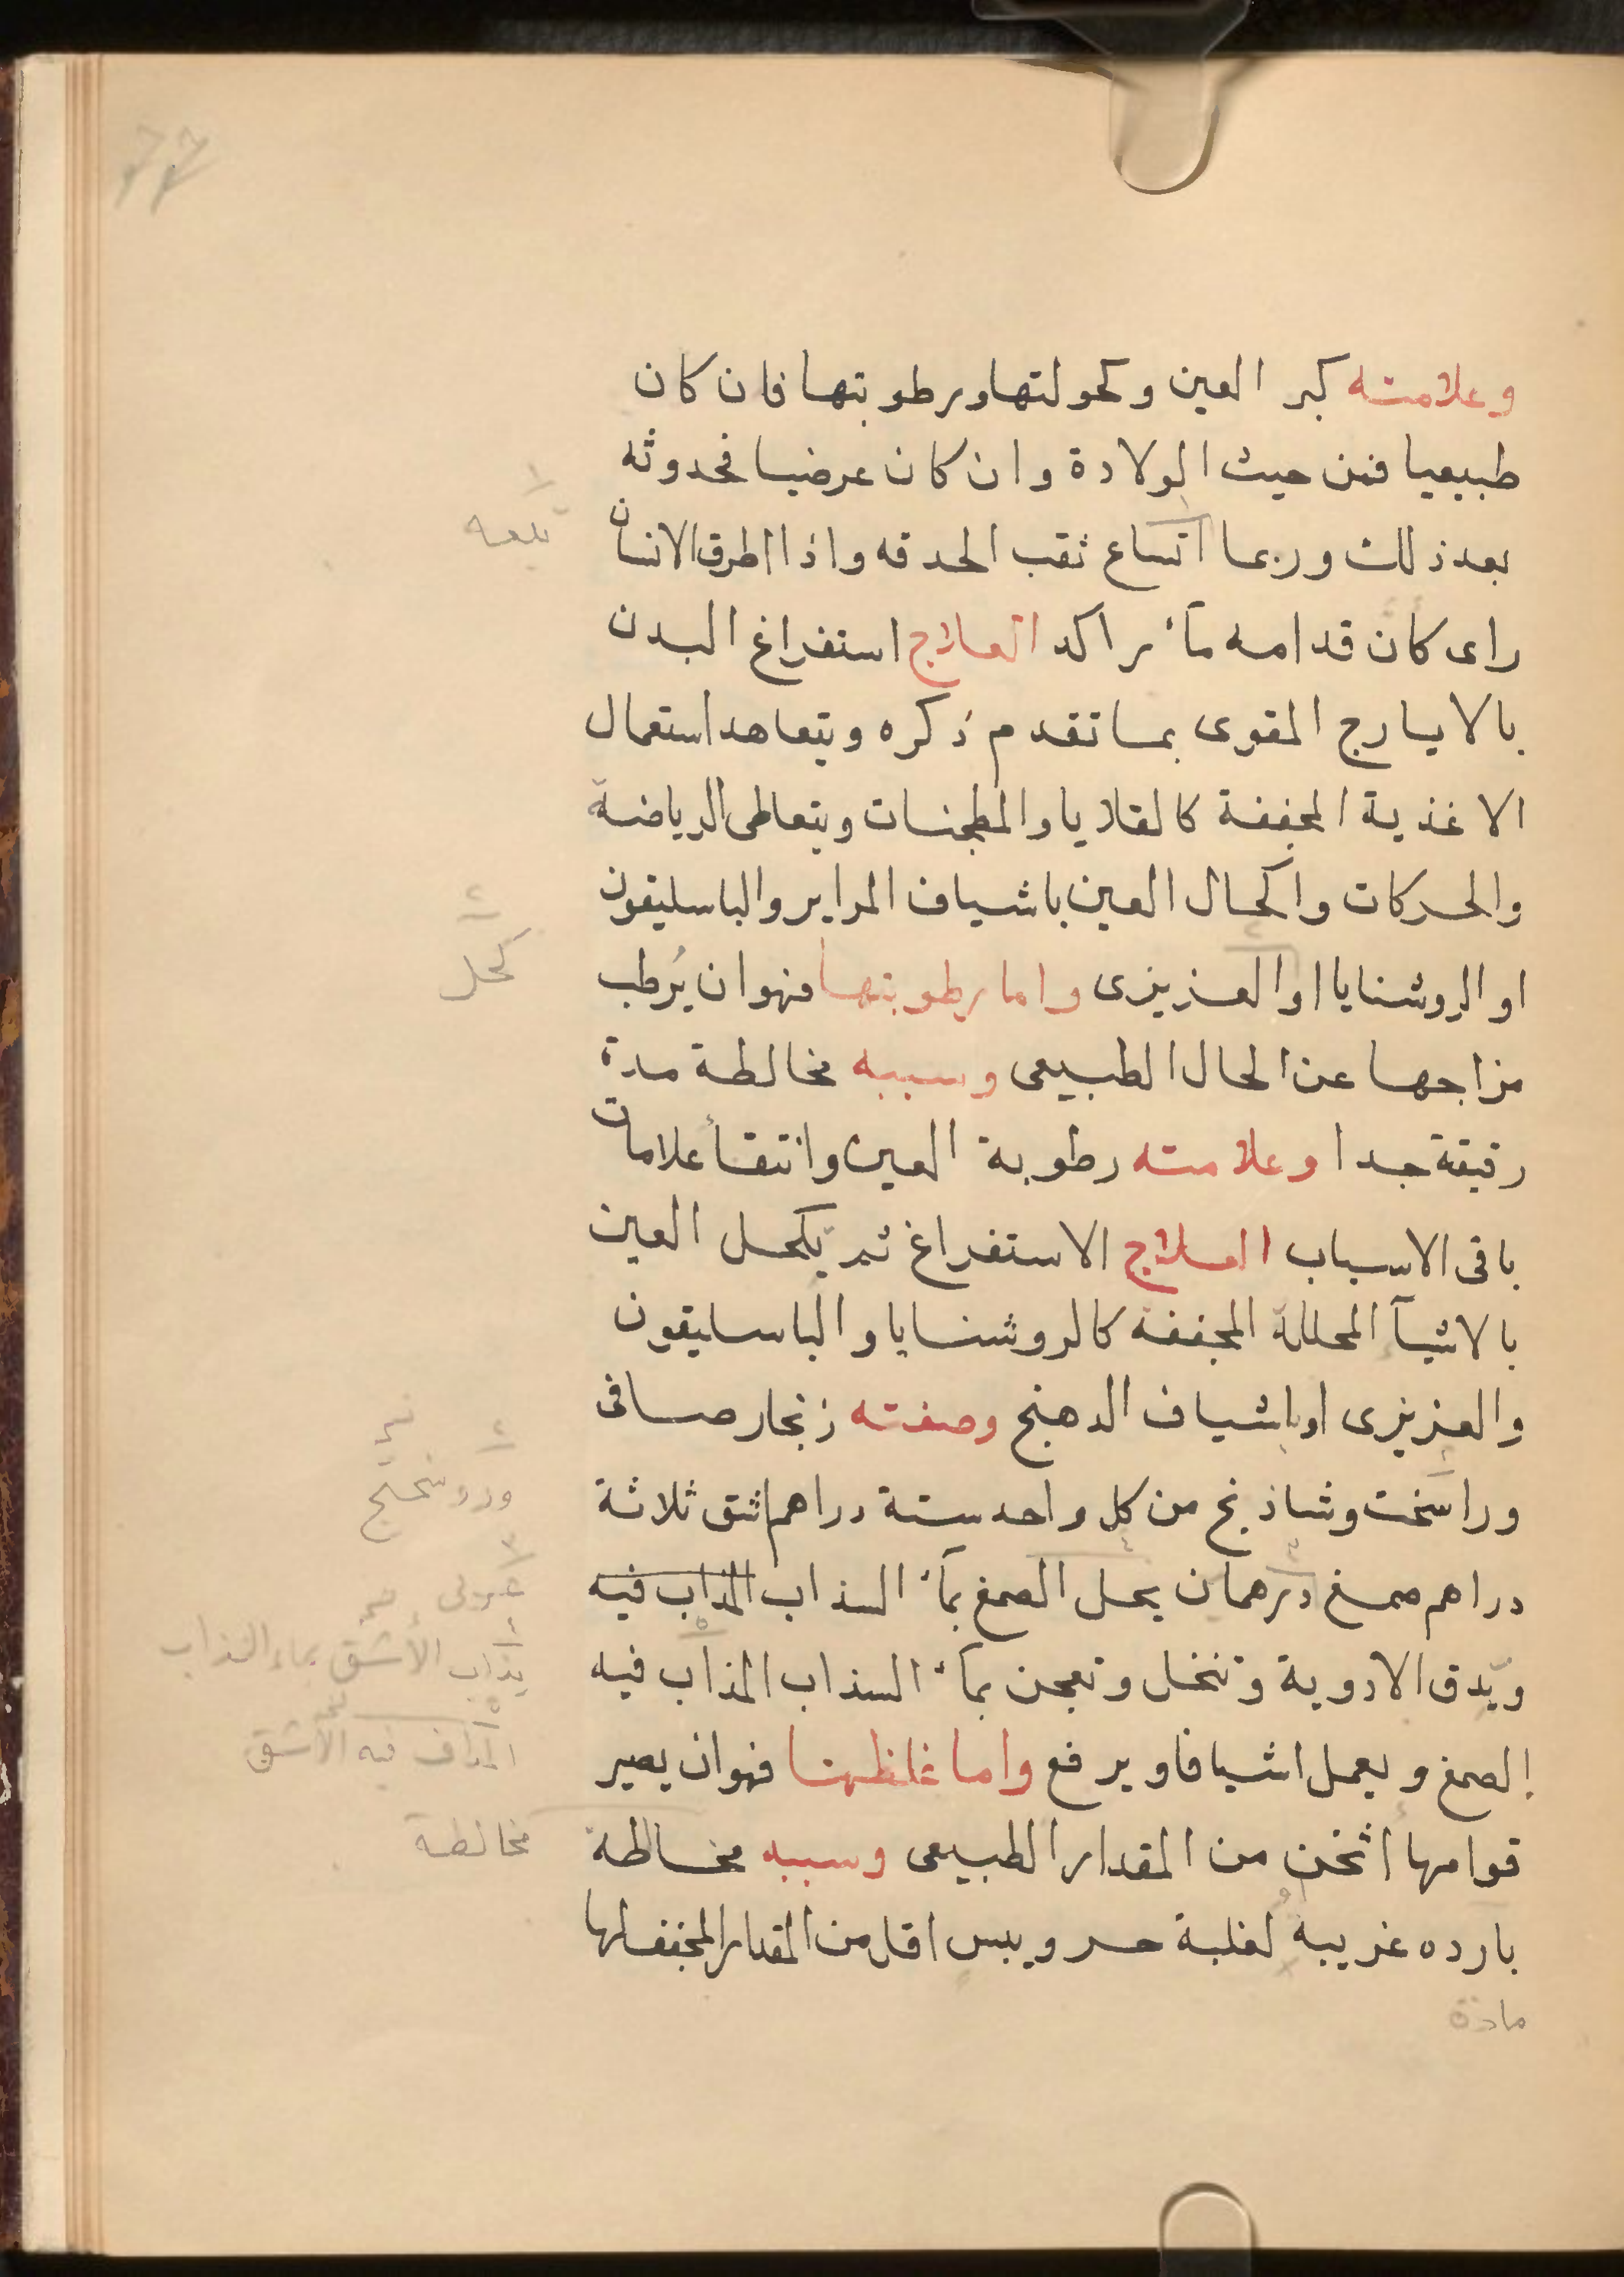 وعلامته كبر العين وكحولتها ورطوبتها فان كان
طبيعيا فمن حيث الولادة وان كان عرضيا فحدوثه
بعد ذلك وربما اتساع ثقب الحدقه واذا اطرق الانسان
راى كان قدامه مآء راكد العلاج استفراغ البدن
بالايارج المقوى بما تقدم ذكره ويتعاهد استعمال
الاغذية المجففة كالقلايا والمطجنات ويتعاطى الرياضة
والحركات واكحال العين باشياف المراير والباسليقون
او الروشنايا او العزيزى واما رطوبتها فهو ان يُرطب
مزاجها عن الحال الطبيعى وسببه مخالطة مدة
رقيقة جدا وعلامته رطوبة العين وانتقأ علامات
باقى الاسباب العلاج الاستفراغ ثم يكحل العين
بالاشيآ المحللة المجففة كالروشنايا والباسليقون
والعزيزى او باشياف الدهنج وصفته زنجار صافى
وراسخت وشاذنج من كل واحد ستة دراهم اشق ثلاثة
دراهم صمغ درهمان يحل الصمغ بمآء السذاب المذاب فيه
ويدق الادوية وتنخل وتعجن بمآء السذاب المذاب فيه
الصمغ ويعمل اشيافا ويرفع واما غلظها فهو ان يصير
قوامها أثخن من المقدار الطبيعى وسببه مخالطة
بارده غريبه لغلبة حر ويبس اقل من المقدار المجفف لها
مادة
١
٢
كحل
٢
وروسختج
٣
عربى
٤
يذاب الأشق بماء السذاب
٥
المداف فيه الأشق
مخالطة